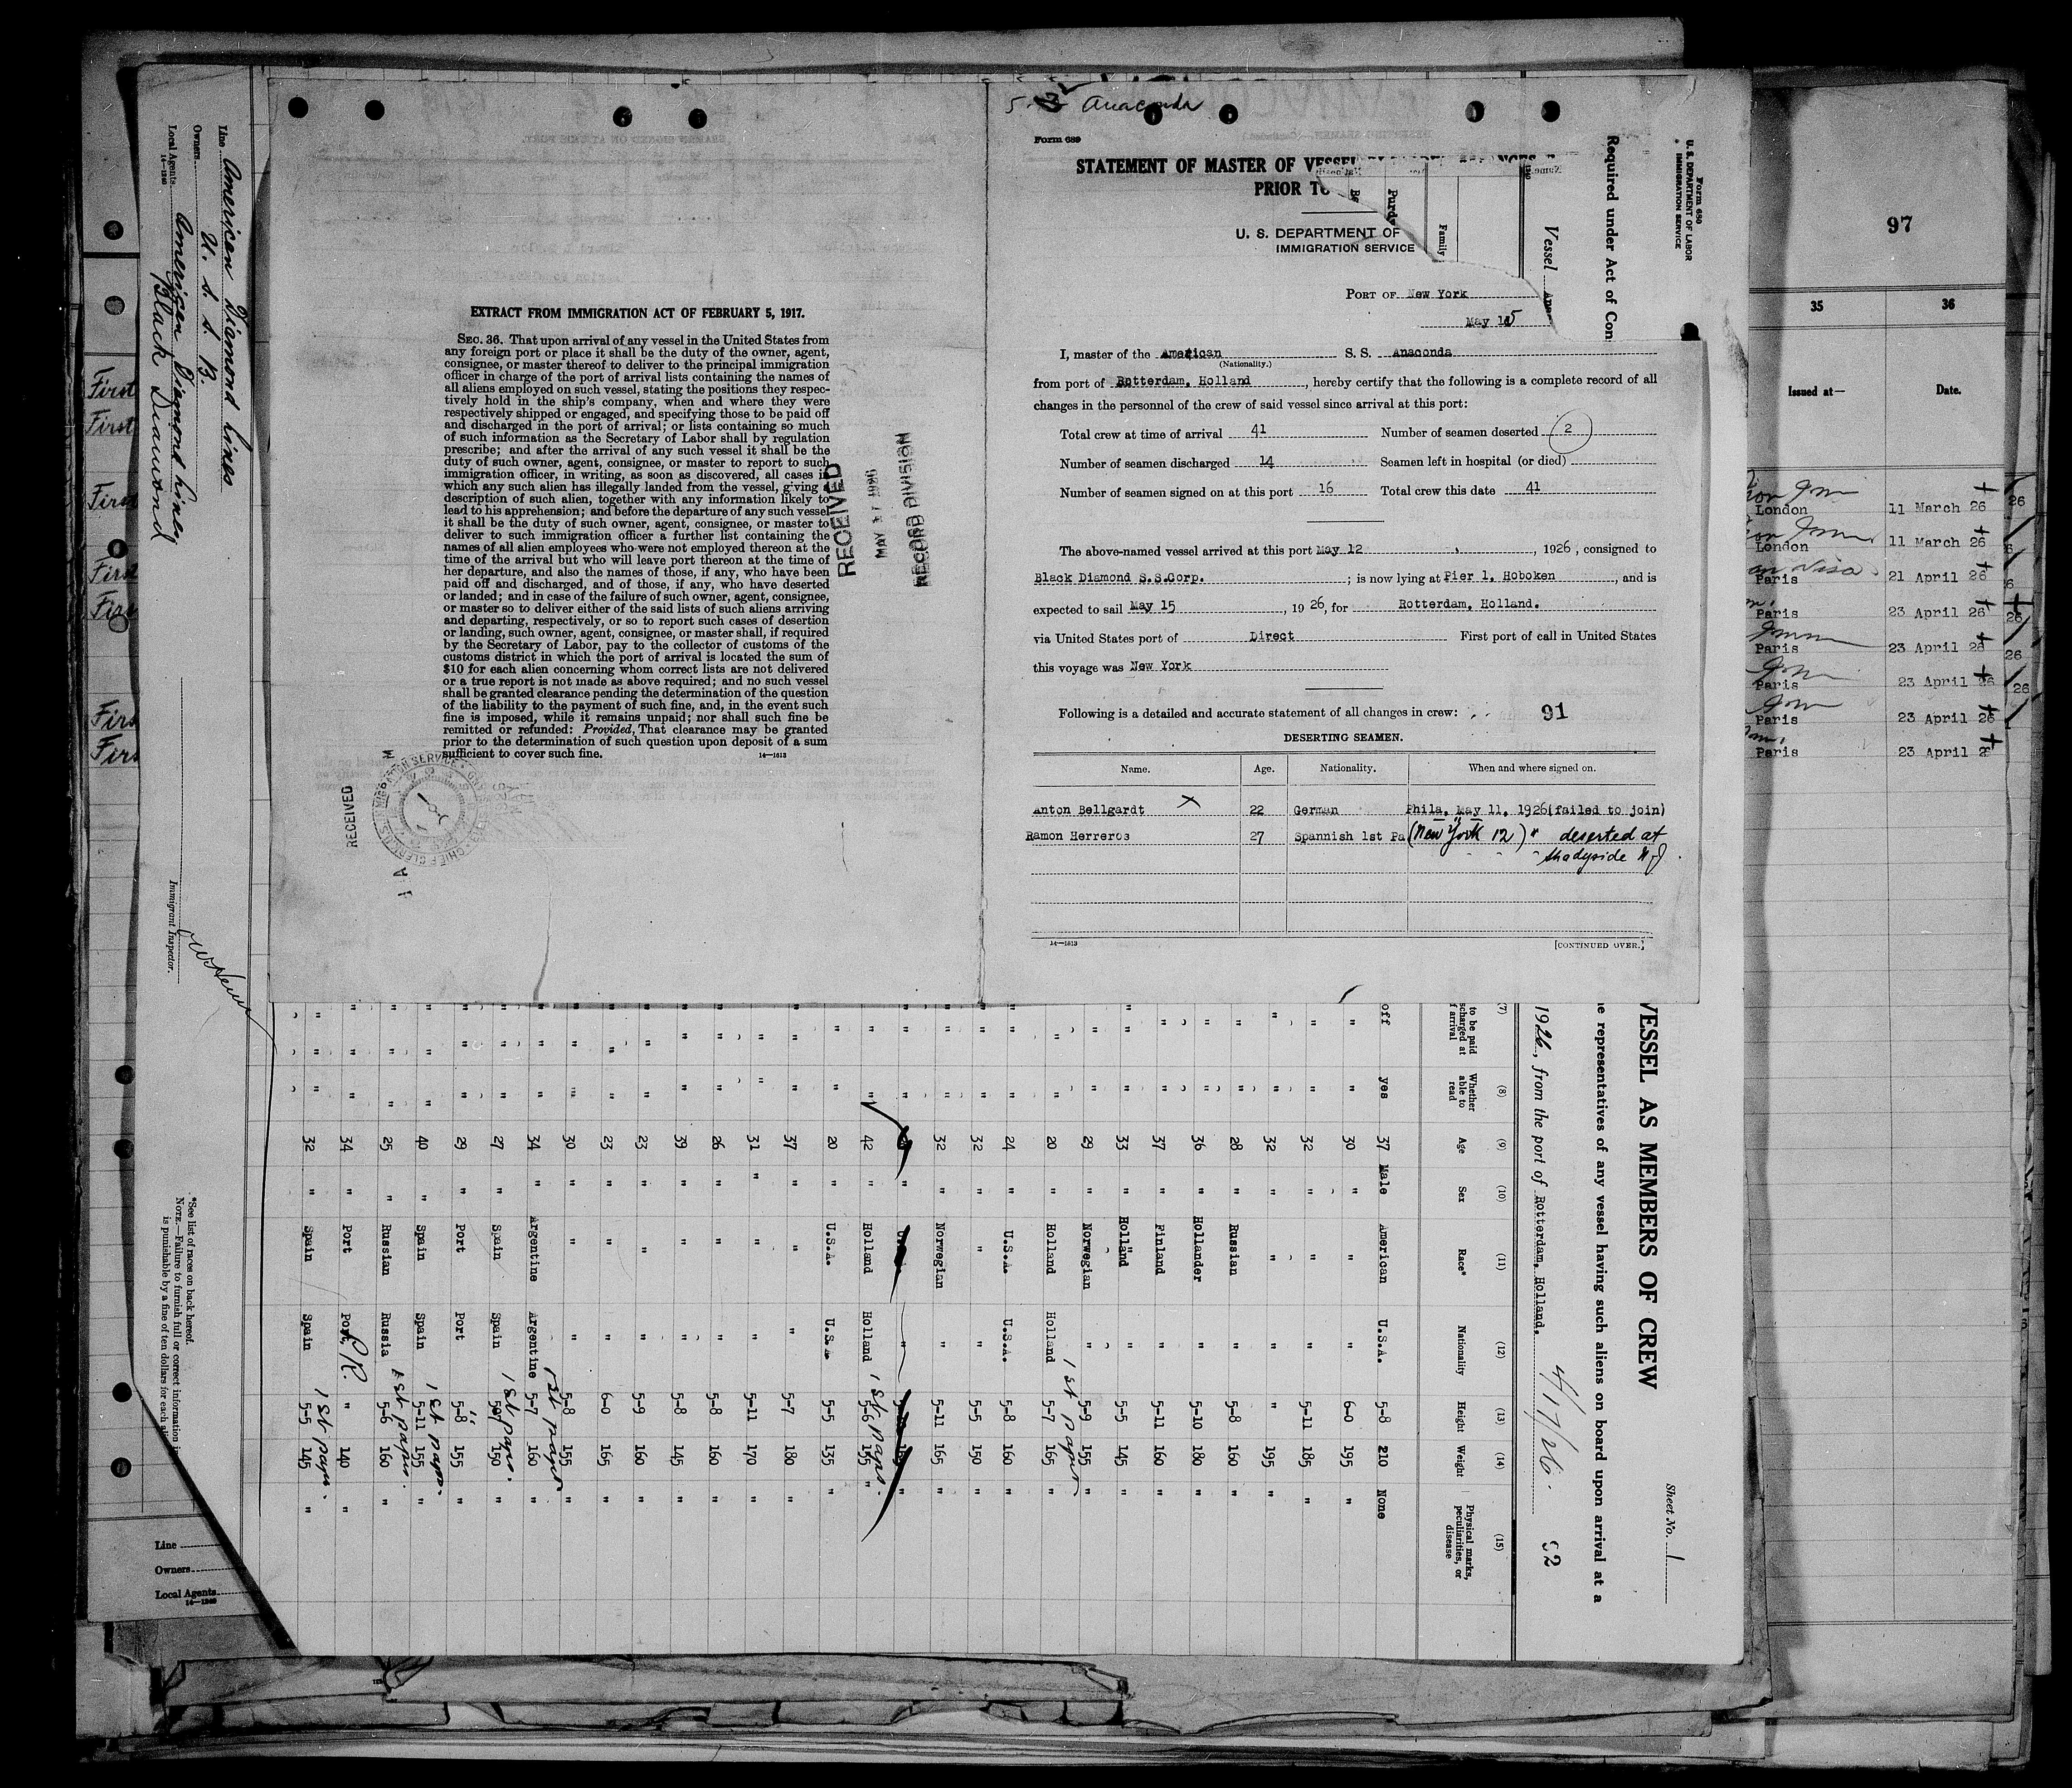 5- Anaconda
Form 689
STATEMENT OF MASTER OF VESSEL
PRIOR TO
U. S. DEPARTMENT OF
IMMIGRATION SERVICE
PORT OF New York
May 15
I, master of the American S. S. Anaconda
(Nationality.)
from port of Rotterdam, Holland, hereby certify that the following is a complete record of all
changes in the personnel of the crew of said vessel since arrival at this port:
Total crew at time of arrival 41 Number of seamen deserted 2
Number of seamen discharged 14 Seamen left in hospital (or died)
Number of seamen signed on at this port 16 Total crew this date 41
The above-named vessel arrived at this port May 12, 1926, consigned to
Black Diamond S.S.Corp. ; is now lying at Pier 1. Hoboken, and is
expected to sail May 15, 1926, for Rotterdam, Holland.
via United States port of Direct First port of call in United States
this voyage was New York
Following is a detailed and accurate statement of all changes in crew: 91
DESERTING SEAMEN.
Name. Age. Nationality. When and where signed on.
Anton Bellgardt X 22 German Phila. May 11, 1926(failed to join)
Ramon Herreros 27 Spannish 1st Pa (New York 12) " deserted at
Shadyside N J
14—1613 [CONTINUED OVER.]
EXTRACT FROM IMMIGRATION ACT OF FEBRUARY 5, 1917.
SEC. 36. That upon arrival of any vessel in the United States from
any foreign port or place it shall be the duty of the owner, agent,
consignee, or master thereof to deliver to the principal immigration
officer in charge of the port of arrival lists containing the names of
all aliens employed on such vessel, stating the positions they respec-
tively hold in the ship's company, when and where they were
respectively shipped or engaged, and specifying those to be paid off
and discharged in the port of arrival; or lists containing so much
of such information as the Secretary of Labor shall by regulation
prescribe; and after the arrival of any such vessel it shall be the
duty of such owner, agent, consignee, or master to report to such
immigration officer, in writing, as soon as discovered, all cases in
which any such alien has illegally landed from the vessel, giving a
description of such alien, together with any information likely to
lead to his apprehension; and before the departure of any such vessel
it shall be the duty of such owner, agent, consignee, or master to
deliver to such immigration officer a further list containing the
names of all alien employees who were not employed thereon at the
time of the arrival but who will leave port thereon at the time of
her departure, and also the names of those, if any, who have been
paid off and discharged, and of those, if any, who have deserted
or landed; and in case of the failure of such owner, agent, consignee,
or master so to deliver either of the said lists of such aliens arriving
and departing, respectively, or so to report such cases of desertion
or landing, such owner, agent, consignee, or master shall, if required
by the Secretary of Labor, pay to the collector of customs of the
customs district in which the port of arrival is located the sum of
$10 for each alien concerning whom correct lists are not delivered
or a true report is not made as above required; and no such vessel
shall be granted clearance pending the determination of the question
of the liability to the payment of such fine, and, in the event such
fine is imposed, while it remains unpaid; nor shall such fine be
remitted or refunded: Provided, That clearance may be granted
prior to the determination of such question upon deposit of a sum
sufficient to cover such fine.
14—1613
RECEIVED
MAY 17 1926
RECORD DIVISION
RECEIVED
Line American Diamond Lines
Owners U. S. S. B.
Local Agents American Diamond Lines
Black Diamond
14—1240
Immigrant Inspector.
*See list of races on back hereof.
NOTE.—Failure to furnish full or correct information
is punishable by a fine of ten dollars for each
Form 680
U. S. DEPARTMENT OF LABOR
IMMIGRATION SERVICE
Required under Act of Con
Vessel
Family
Purdy
Sheet No. 1
VESSEL AS MEMBERS OF CREW
representatives of any vessel having such aliens on board upon arrival at a
1926, from the port of Rotterdam, Holland. 4/17/26. 92
(7) (8) (9) (10) (11) (12) (13) (14) (15)
to be paid Whether able to read Age Sex Race* Nationality Height Weight Physical marks, peculiarities, or disease
off yes 37 Male American U.S.A. 5-8 210 None
" " 30 " " " 6-0 195 "
" " 32 " " " 5-11 185 "
" " 32 " " " " 195 "
" " 28 " Russian " 5-8 160 "
" " 36 " Hollander " 5-10 180 "
" " 37 " Finland " 5-11 160 "
" " 33 " Holland " 5-5 145 "
" " 29 " Norwegian " 5-9 155 "
" " 20 " Holland Holland 1st paper 5-7 165 "
" " 24 " U.S.A. U.S.A. 5-8 160 "
" " 32 " " " 5-5 150 "
" " 32 " Norwegian " 5-11 165 "
" " 42 " Holland Holland 1st paps. 5-6 155 "
" " 20 " U.S.A. U.S.A. 5-5 135 "
" " 37 " " " 5-7 180 "
" " 31 " " " 5-11 170 "
" " 26 " " " 5-8 160 "
" " 39 " " " 5-8 145 "
" " 23 " " " 5-9 160 "
" " 23 " " " 6-0 165 "
" " 30 " " " 5-8 155 "
" " 34 " Argentine Argentine 1st paper 5-7 160 "
" " 27 " Spain Spain 1st paps. 150 "
" " 29 " Port Port " 5-8 155 "
" " 40 " Spain Spain 1st paps. 5-11 155 "
" " 25 " Russian Russia 1st papers. 5-6 160 "
" " 34 " Port Port P.R. " 140 "
" " 32 " Spain Spain 1st paps. 5-5 145 "
97
35 36
Issued at— Date.
London 11 March 26
London 11 March 26
Paris 21 April 26
Paris 23 April 26
Paris 23 April 26
Paris 23 April 26
Paris 23 April 26
Paris 23 April 26
First
First
First
First
First
First
First
Line
Owners
Local Agents
14—1240